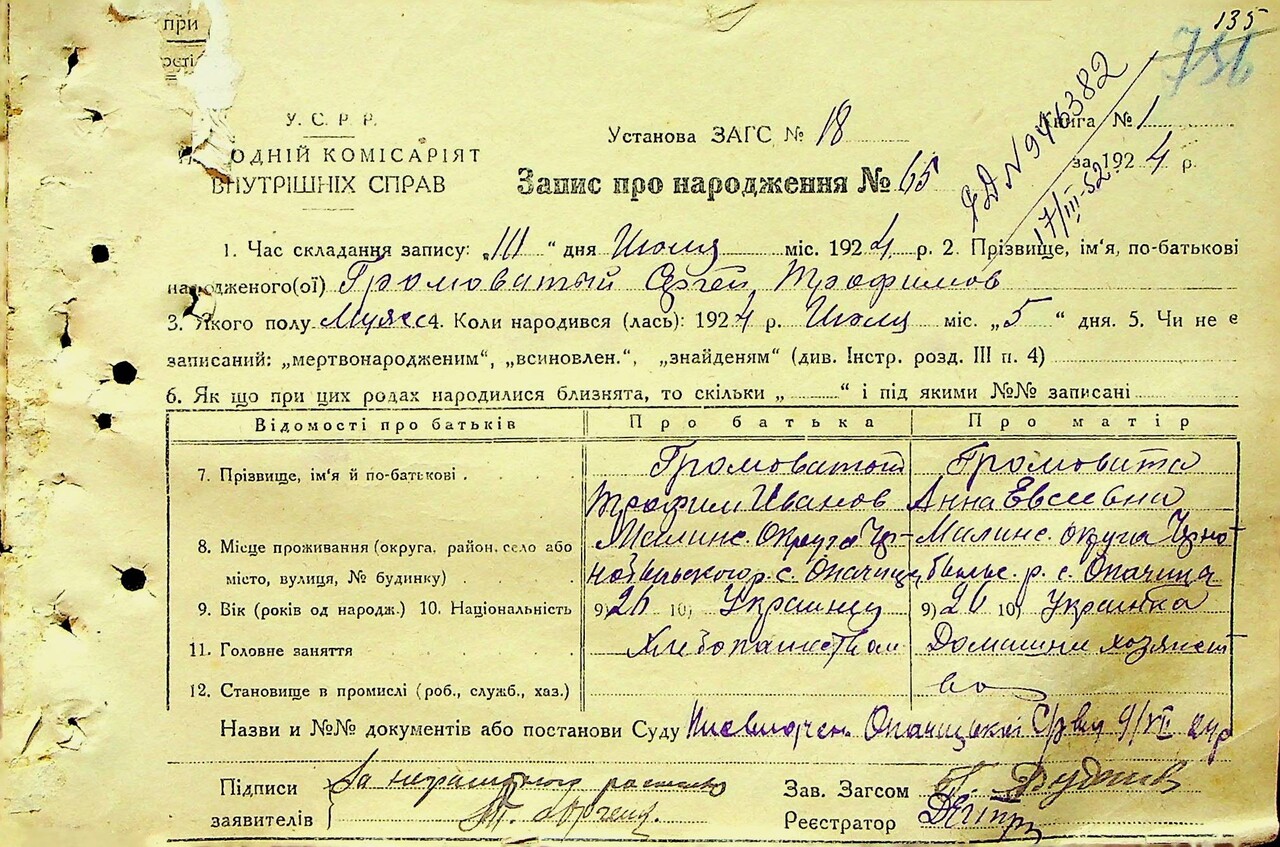 135
756
при
У. С. Р. Р.
ОДНІЙ КОМІСАРІЯТ
ВНУТРІШНІХ СПРАВ
Установа ЗАГС № 18
Книга № 1
за 1924 р.
№ 946382
17/III-52
Запис про народження № 65
1. Час складання запису: „ “ дня Июля міс. 1924 р. 2. Прізвище, ім'я, по-батькові
народженого(ої) Громоватый Сергей Трофимов
3. Якого полу Мужс 4. Коли народився (лась): 1924 р. Июля міс. „5“ дня. 5. Чи не є
записаний: „мертвонародженим“, „всиновлен.“, „знайденям“ (див. Інстр. розд. III п. 4)
6. Як що при цих родах народилися близнята, то скільки „ “ і під якими №№ записані
Відомості про батьків Про батька Про матір
7. Прізвище, ім'я й по-батькові Громоватый Громовата
Трофим Иванов Анна Евсеевна
8. Місце проживання (округа, район, село або Малинс. Округа Чр- Малинс. округа Черно-
місто, вулиця, № будинку) нобыльского р. с. Опачица быльс. р. с. Опачица
9. Вік (років од народж.) 10. Національність 9) 26 10) Украинец 9) 26 10) Украинка
11. Головне заняття Хлебопашеством Домашни хозяйст-
12. Становище в промислі (роб., служб., хаз.) во
Назви и №№ документів або постанови Суду Опачицкой С/рады
Підписи За неграмотного
заявителів
Зав. Загсом
Реєстратор